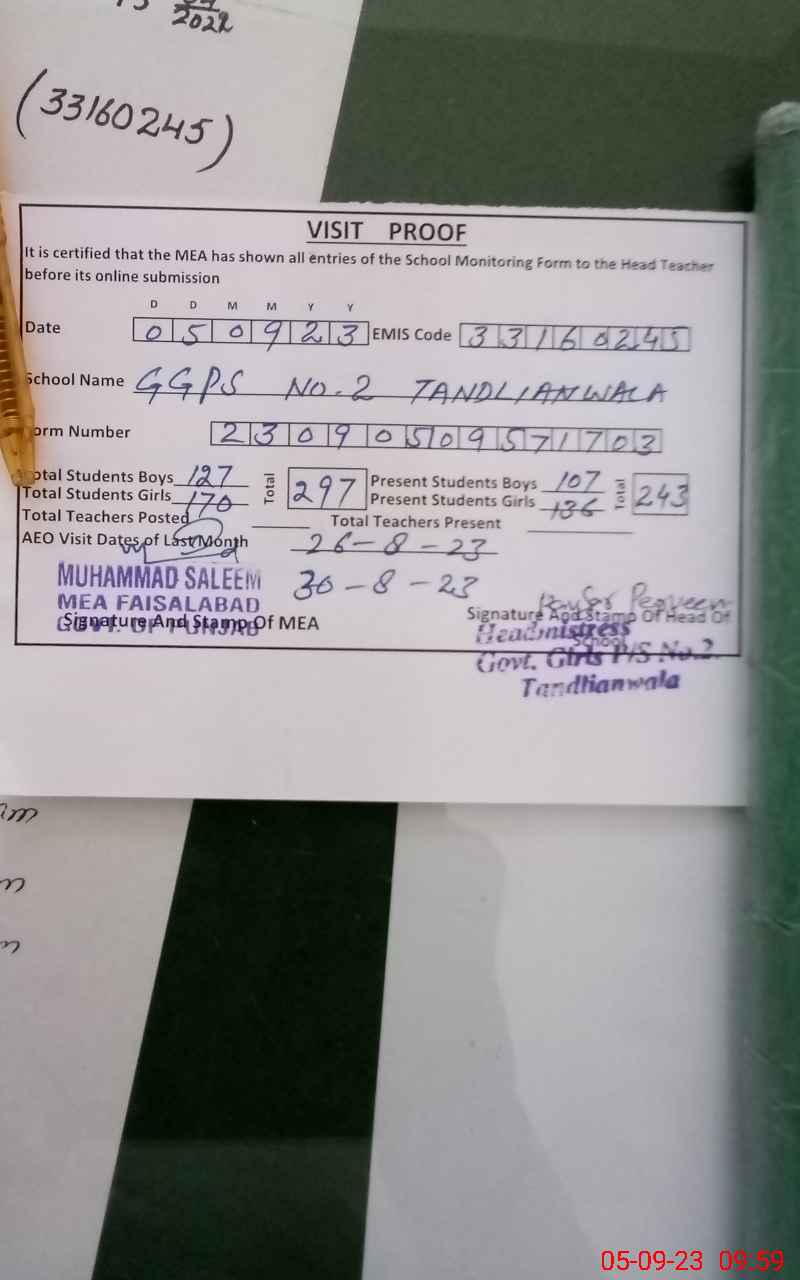 2022
(33160245)
VISIT PROOF
It is certified that the MEA has shown all entries of the School Monitoring Form to the Head Teacher
before its online submission
D D M M Y Y
Date 050923 EMIS Code 33160245
School Name GGPS NO.2 TANDLIANWALA
Form Number 23090509571703
Total Students Boys 127 Total 297 Present Students Boys 107 Total 243
Total Students Girls 170 Present Students Girls 136
Total Teachers Posted Total Teachers Present
AEO Visit Dates of Last Month 26-8-23
30-8-23
MUHAMMAD SALEEM
MEA FAISALABAD
GOVT. OF PUNJAB
Signature And Stamp Of MEA
Signature And Stamp Of Head Of
School
Headmistress
Govt. Girls P/S No.2
Tandlianwala
05-09-23 09:59